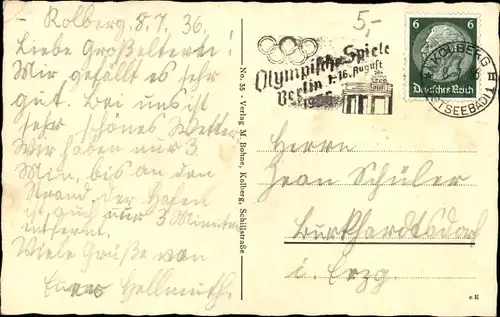 - Kolberg, 8.7.36.
Liebe Großeltern!
Mir gefällt es sehr
gut. Bei uns ist
sehr schönes Wetter
Wir haben nur 3
Min. bis an den
Strand, der Hafen
ist auch nur 3 Minuten
entfernt.
Viele Grüße von
Euer Hellmuth.
No. 35 - Verlag M. Bohne, Kolberg, Schillstraße
5,-
Olympische Spiele
Berlin 1.-16. August
1936
6 6
Deutsches Reich
KOLBERG
OSTSEEBAD
Herrn
Schüler
Burkhardtsdorf
i. Erzg.
e K